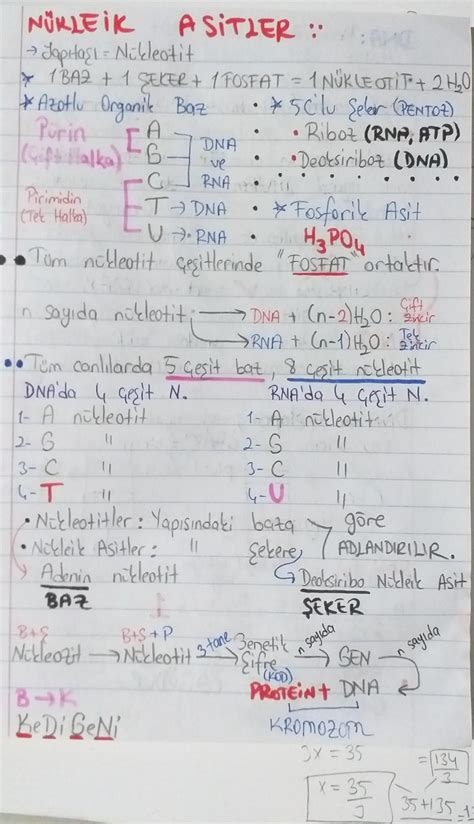 NÜKLEİK ASİTLER ::
→ Yapıtaşı = Nükleotit
* 1 BAZ + 1 ŞEKER + 1 FOSFAT = 1 NÜKLEOTİT + 2H₂O
* Azotlu Organik Baz • * 5C'lu Şeker (PENTOZ)
Pürin (Çift Halka) A G
C DNA ve RNA
• Riboz (RNA, ATP)
• Deoksiriboz (DNA)
Pirimidin (Tek Halka) T → DNA • * Fosforik Asit
U → RNA H₃PO₄
•• Tüm nükleotit çeşitlerinde "FOSFAT" ortaktır.
n sayıda nükleotit → DNA + (n-2)H₂O : Çift zincir
→ RNA + (n-1)H₂O : Tek zincir
•• Tüm canlılarda 5 çeşit baz, 8 çeşit nükleotit
DNA'da 4 çeşit N. RNA'da 4 çeşit N.
1- A nükleotit 1- A nükleotit
2- G " 2- G "
3- C " 3- C "
4- T " 4- U "
• Nükleotitler : Yapısındaki baza göre
• Nükleik Asitler : " şekere ADLANDIRILIR.
Adenin nükleotit Deoksiribo Nükleik Asit
BAZ ŞEKER
B+Ş B+Ş+P
Nükleozit → Nükleotit 3 tane → Genetik Şifre (KOD) n sayıda → GEN n sayıda
PROTEİN + DNA
B → K KROMOZOM
KeDi GeNi
3x = 35 = 134/3
x = 35/3 35+135